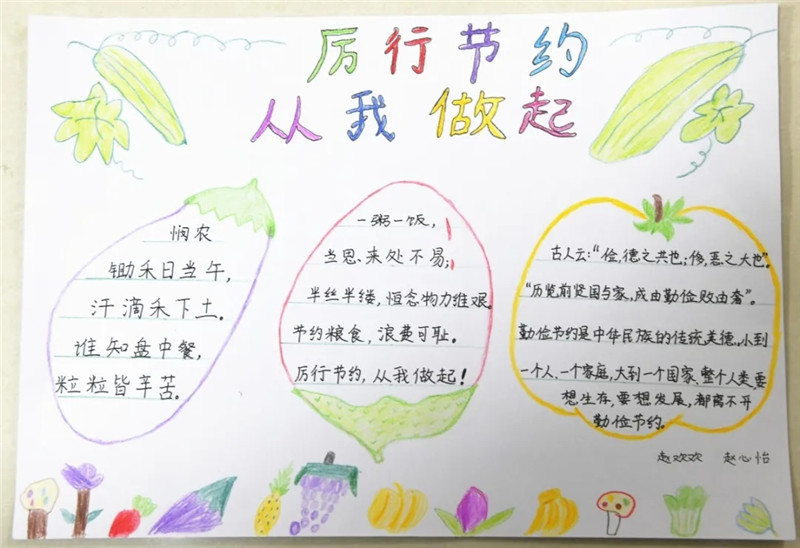 厉行节约
从我做起
悯农
锄禾日当午,
汗滴禾下土.
谁知盘中餐,
粒粒皆辛苦.
一粥一饭,
当思、来处不易;
半丝半缕,恒念物力维艰.
节约粮食,浪费可耻.
厉行节约,从我做起!
古人云:“俭,德之共也;侈,恶之大也”.
“历览前贤国与家,成由勤俭败由奢”.
勤俭节约是中华民族的传统美德.小到
一个人、一个家庭,大到一个国家、整个人类,要
想生存,要想发展,都离不开
勤俭节约.
赵欢欢 赵心怡